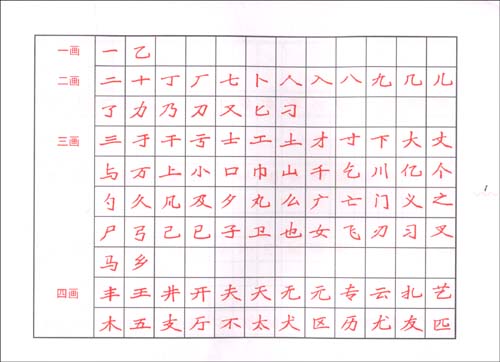 一画 一 乙
二画 二 十 丁 厂 七 卜 人 入 八 九 几 儿
了 力 乃 刀 又 匕 刁
三画 三 于 干 亏 士 工 土 才 寸 下 大 丈
与 万 上 小 口 巾 山 千 乞 川 亿 个
勺 久 凡 及 夕 丸 么 广 亡 门 义 之
尸 弓 己 已 子 卫 也 女 飞 刃 习 叉
马 乡
四画 丰 王 井 开 夫 天 无 元 专 云 扎 艺
木 五 支 厅 不 太 犬 区 历 尤 友 匹
1